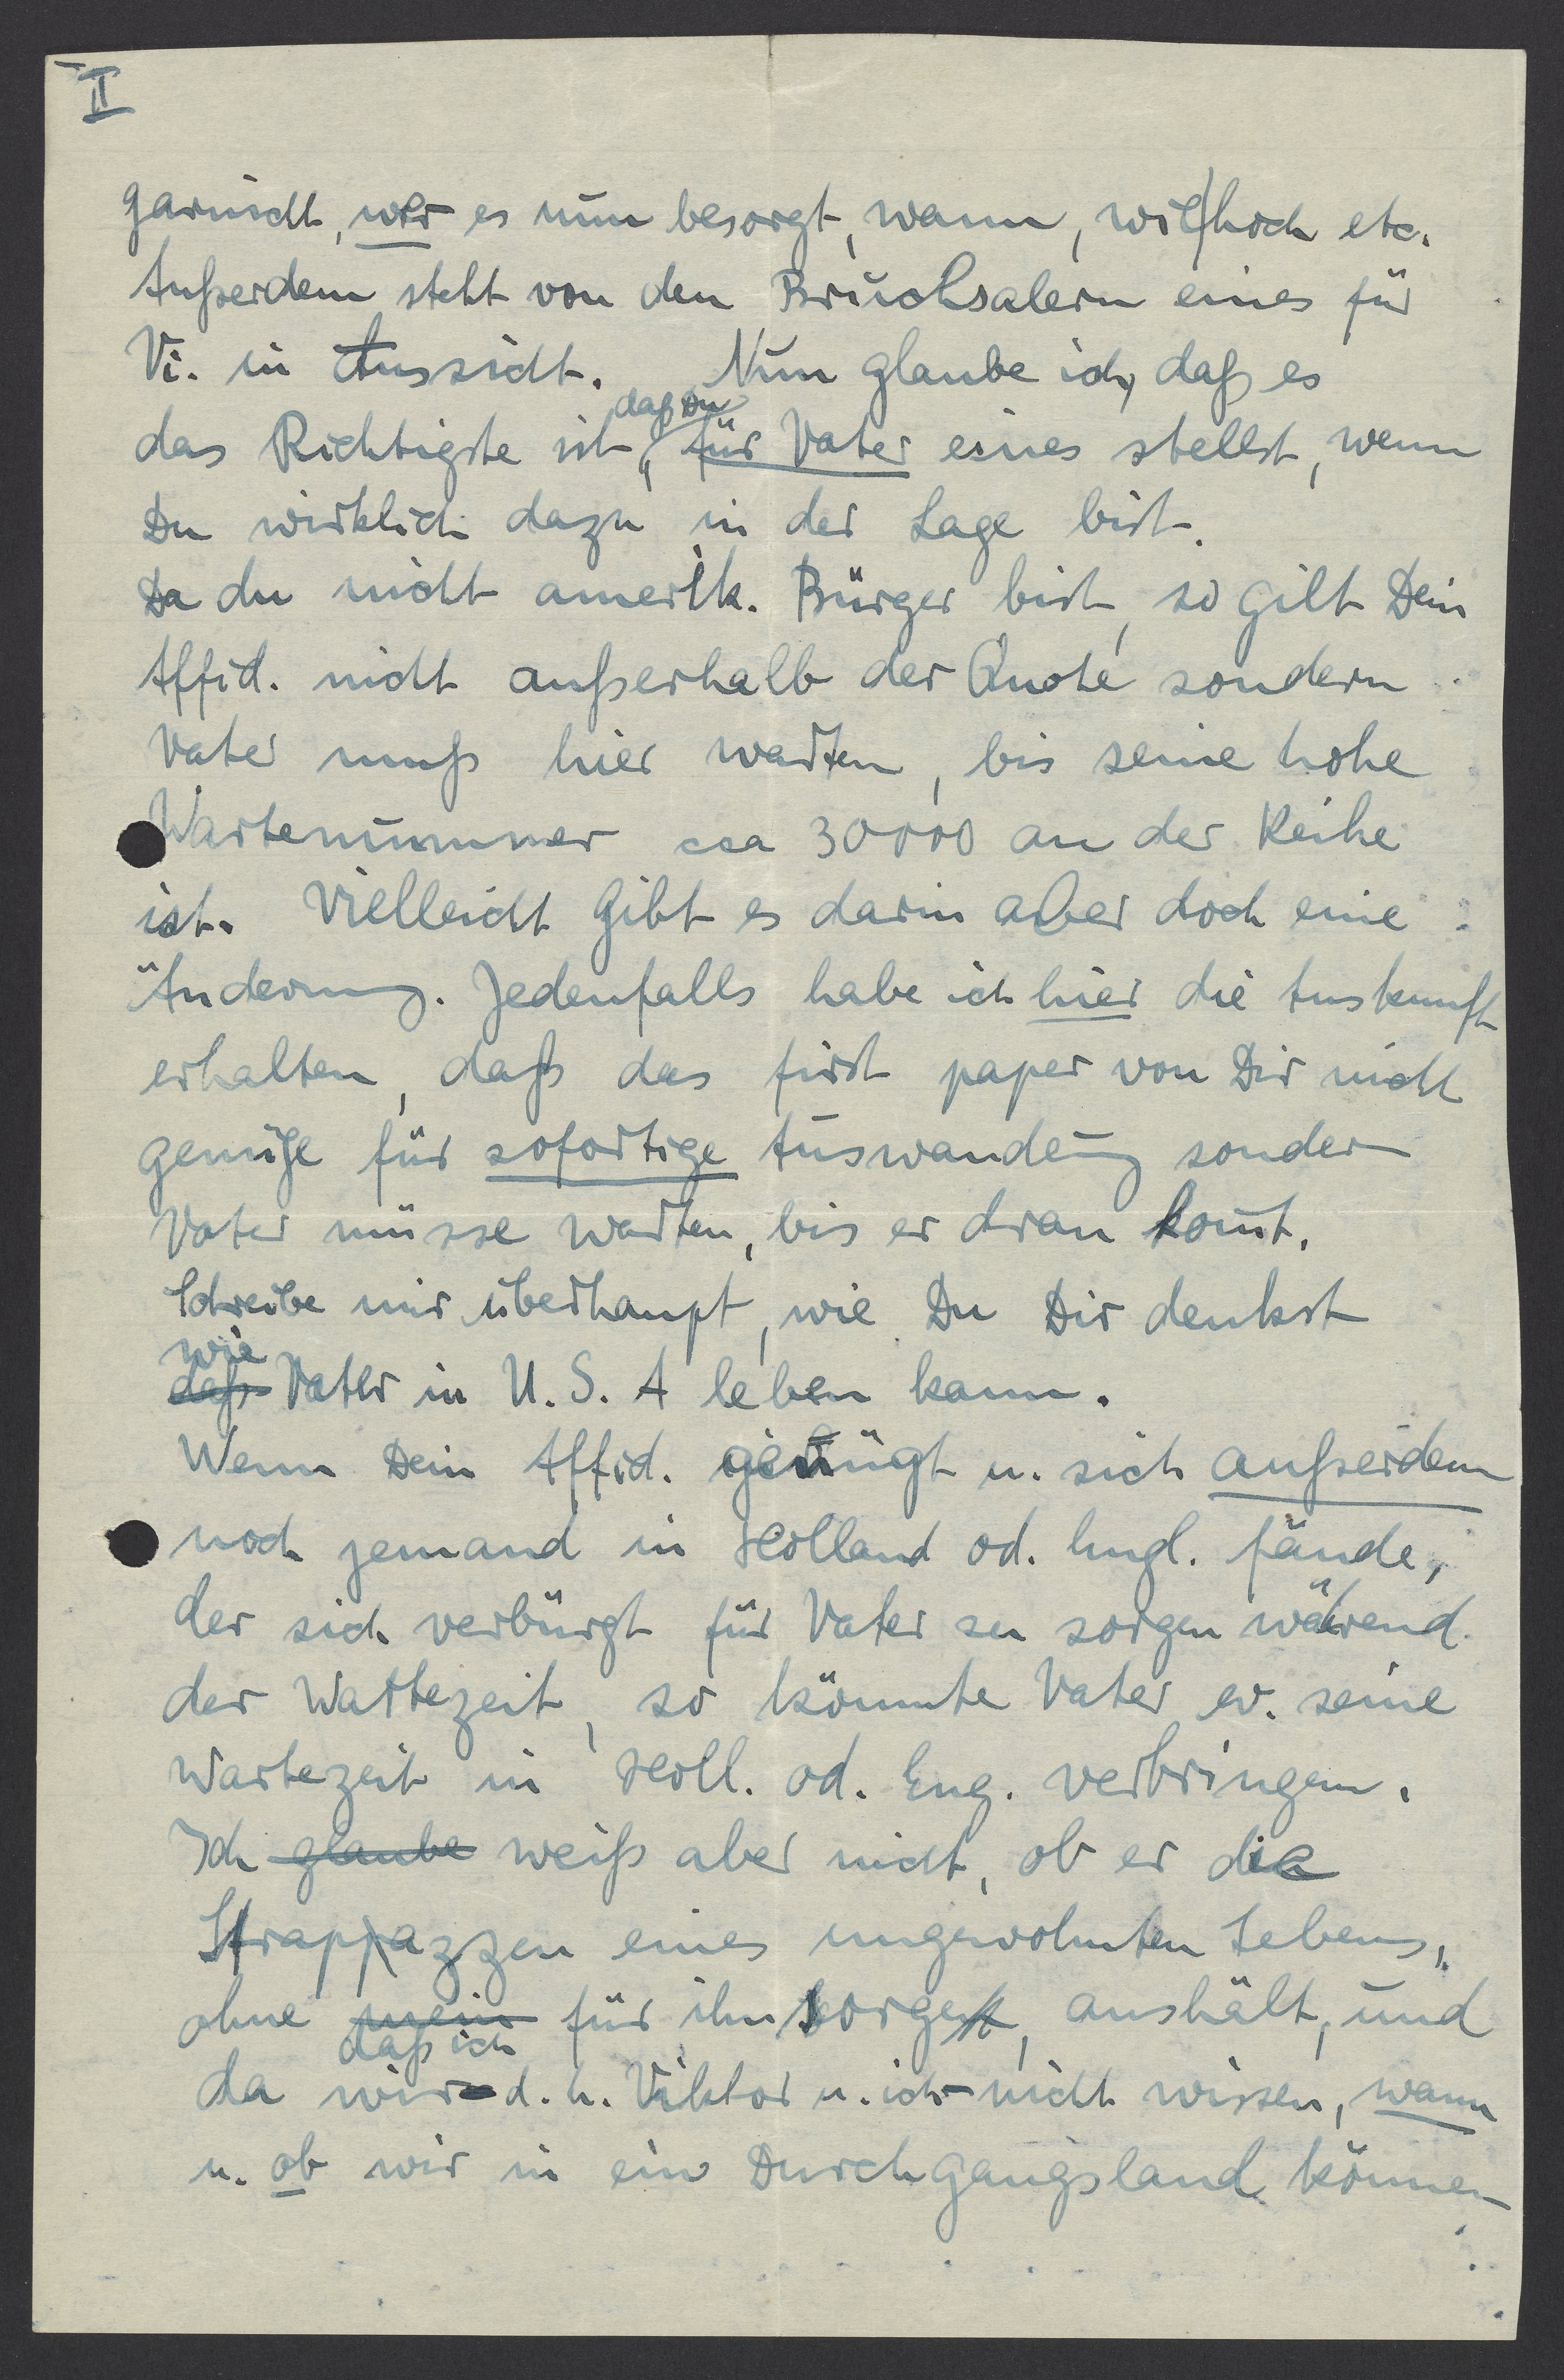 II
garnicht, wer es nun besorgt, wann, wie hoch etc.
Außerdem steht von den Bruchsalern eines für
Vi. in Aussicht. Nun glaube ich, daß es
daß Du
das Richtigste ist, für Vater eines stellst, wenn
Du wirklich dazu in der Lage bist.
Da du nicht amerik. Bürger bist, so gilt Dein
Affid. nicht außerhalb der Quote sondern
Vater muß hier warten, bis seine hohe
Wartenummer cca 30000 an der Reihe
ist. Vielleicht gibt es darin aber doch eine
Änderung. Jedenfalls habe ich hier die Auskunft
erhalten, daß das first paper von Dir nicht
genüge für sofortige Auswanderung sondern
Vater müsse warten, bis er dran kom̄t.
Schreibe mir überhaupt, wie Du Dir denkst
wie
daß Vater in U.S.A leben kann.
Wenn Dein Affid. genügt u. sich außerdem
noch jemand in Holland od. Engl. fände,
der sich verbürgt für Vater zu sorgen während
der Wartezeit, so könnte Vater ev. seine
Wartezeit in Holl. od. Eng. verbringen.
Ich glaube weiß aber nicht, ob er die
Strappazzen eines ungewohnten Lebens,
ohne mein für ihn sorge, aushält, und
daß ich
da wir - d.h. Viktor u. ich - nicht wissen, wann
u. ob wir in ein Durchgangsland können